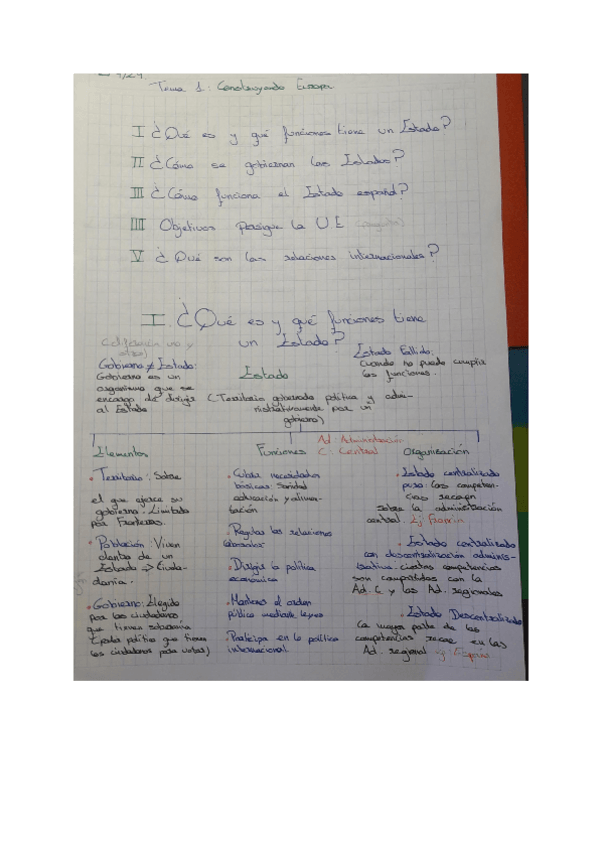 4/24.
Tema 1: Construyendo Europa
I ¿Qué es y qué funciones tiene un Estado?
II ¿Cómo se gobiernan los Estados?
III ¿Cómo funciona el Estado español?
IIII Objetivos persigue la UE
V ¿Qué son las relaciones internacionales?
I. ¿Qué es y qué funciones tiene
un Estado?
(diferencia uno y
otro)
Gobierno ≠ Estado:
Gobierno es un
organismo que se
encarga de dirigir
al Estado
Estado
(Territorio gobernado política y admi-
nistrativamente por un
gobierno)
Estado Fallido:
Cuando no puede cumplir
las funciones.
Ad: Administración
C: Central
Elementos
• Territorio: Sobre
el que ejerce su
gobierno. Limitada
por Fronteras.
• Población: Viven
dentro de un
Estado => Ciuda-
danía.
• Gobierno: Elegido
por los ciudadanos
que tienen soberanía
(poder político que tienen
los ciudadanos para votar)
Funciones
• Cubrir necesidades
básicas: Sanidad
educación y alimen-
tación
• Regular las relaciones
laborales
• Dirigir la política
económica
• Mantener el orden
público mediante leyes
• Participa en la política
internacional
Organización
• Estado centralizado
las competen-
cias recaen
sobre la administración
central. Ej: Francia
• Estado centralizado
con descentralización adminis-
trativa: ciertas competencias
son compartidas con la
Ad. C y las Ad. regionales
• Estado Descentralizado
La mayor parte de las
competencias recae en las
Ad. regional ej: España